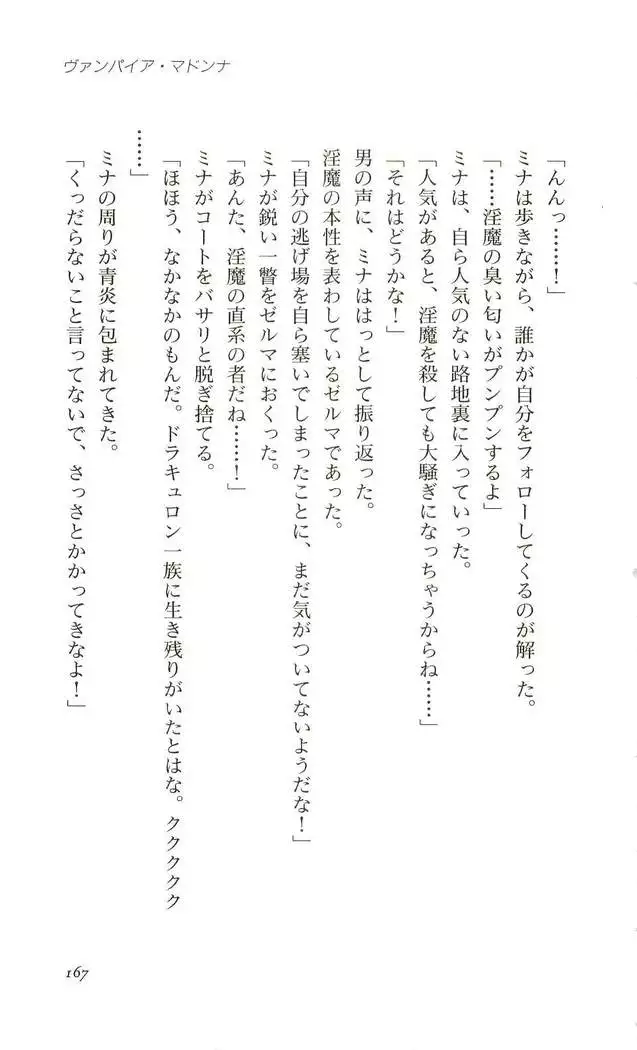 ヴァンパイア・マドンナ
「んんっ……！」
ミナは歩きながら、誰かが自分をフォローしてくるのが解った。
「……淫魔の臭い匂いがプンプンするよ」
ミナは、自ら人気のない路地裏に入っていった。
「人気があると、淫魔を殺しても大騒ぎになっちゃうからね……」
「それはどうかな！」
男の声に、ミナははっとして振り返った。
淫魔の本性を表わしているゼルマであった。
「自分の逃げ場を自ら塞いでしまったことに、まだ気がついてないようだな！」
ミナが鋭い一瞥をゼルマにおくった。
「あんた、淫魔の直系の者だね……！」
ミナがコートをバサリと脱ぎ捨てる。
「ほほう、なかなかのもんだ。ドラキュロン一族に生き残りがいたとはな。ククククク
……」
ミナの周りが青炎に包まれてきた。
「くっだらないこと言ってないで、さっさとかかってきなよ！」
167